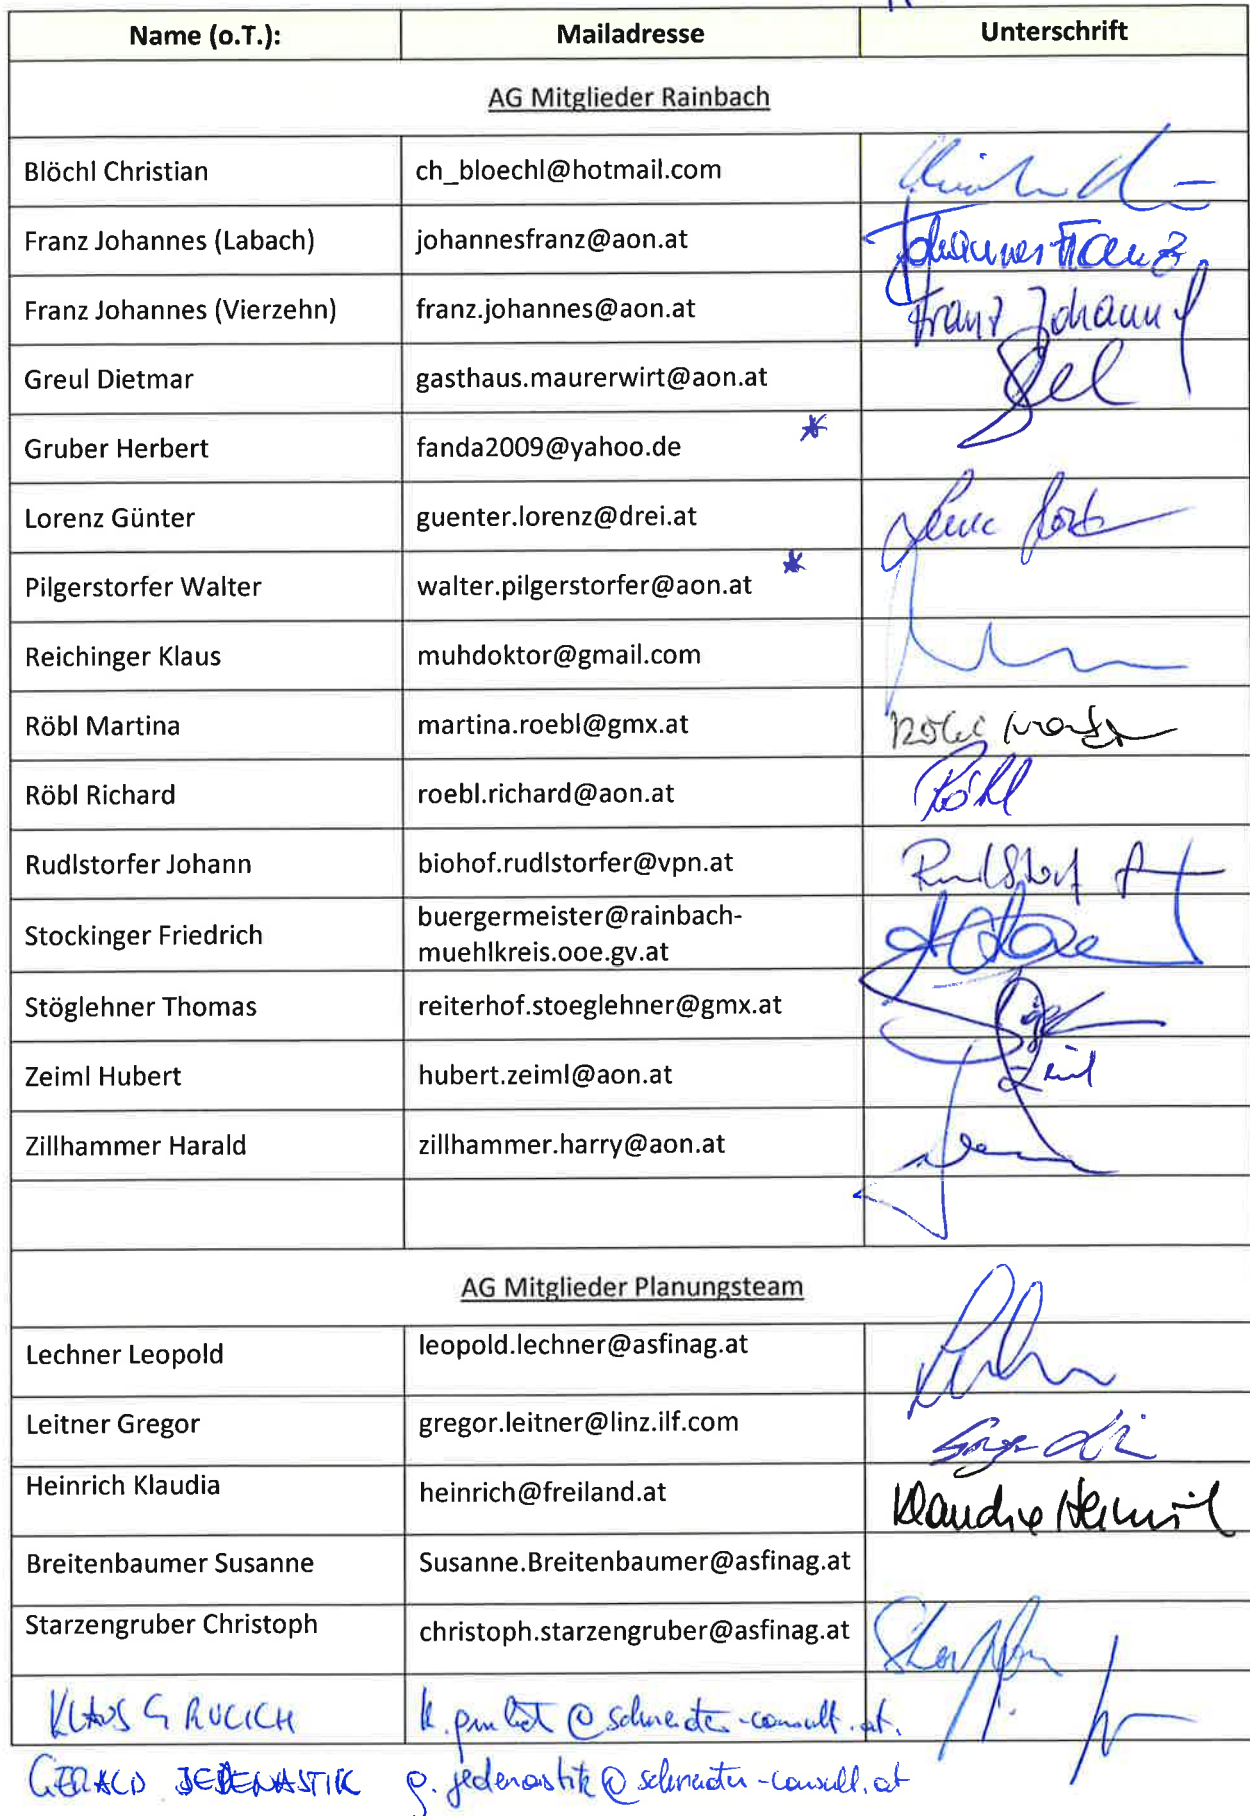 Name (o.T.): Mailadresse Unterschrift
AG Mitglieder Rainbach
Blöchl Christian ch_bloechl@hotmail.com
Franz Johannes (Labach) johannesfranz@aon.at Johannes Franz
Franz Johannes (Vierzehn) franz.johannes@aon.at Franz Johann
Greul Dietmar gasthaus.maurerwirt@aon.at
Gruber Herbert fanda2009@yahoo.de *
Lorenz Günter guenter.lorenz@drei.at
Pilgerstorfer Walter walter.pilgerstorfer@aon.at *
Reichinger Klaus muhdoktor@gmail.com
Röbl Martina martina.roebl@gmx.at
Röbl Richard roebl.richard@aon.at Röbl
Rudlstorfer Johann biohof.rudlstorfer@vpn.at
Stockinger Friedrich buergermeister@rainbach-
muehlkreis.ooe.gv.at
Stöglehner Thomas reiterhof.stoeglehner@gmx.at
Zeiml Hubert hubert.zeiml@aon.at
Zillhammer Harald zillhammer.harry@aon.at
AG Mitglieder Planungsteam
Lechner Leopold leopold.lechner@asfinag.at
Leitner Gregor gregor.leitner@linz.ilf.com
Heinrich Klaudia heinrich@freiland.at Klaudia Heinrich
Breitenbaumer Susanne Susanne.Breitenbaumer@asfinag.at
Starzengruber Christoph christoph.starzengruber@asfinag.at
KLAUS @schneider-consult.at
GERALD JEDENASTIK g.jedenastik@schneider-consult.at